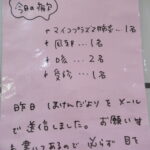 今日の報告
+ マイコプラズマ肺炎…1名
+ 風邪…1名
+ 咳…2名
+ 発熱…1名
昨日 ほけんだよりをメール
で送信しました。お願い
も書いてあるので必ず目を